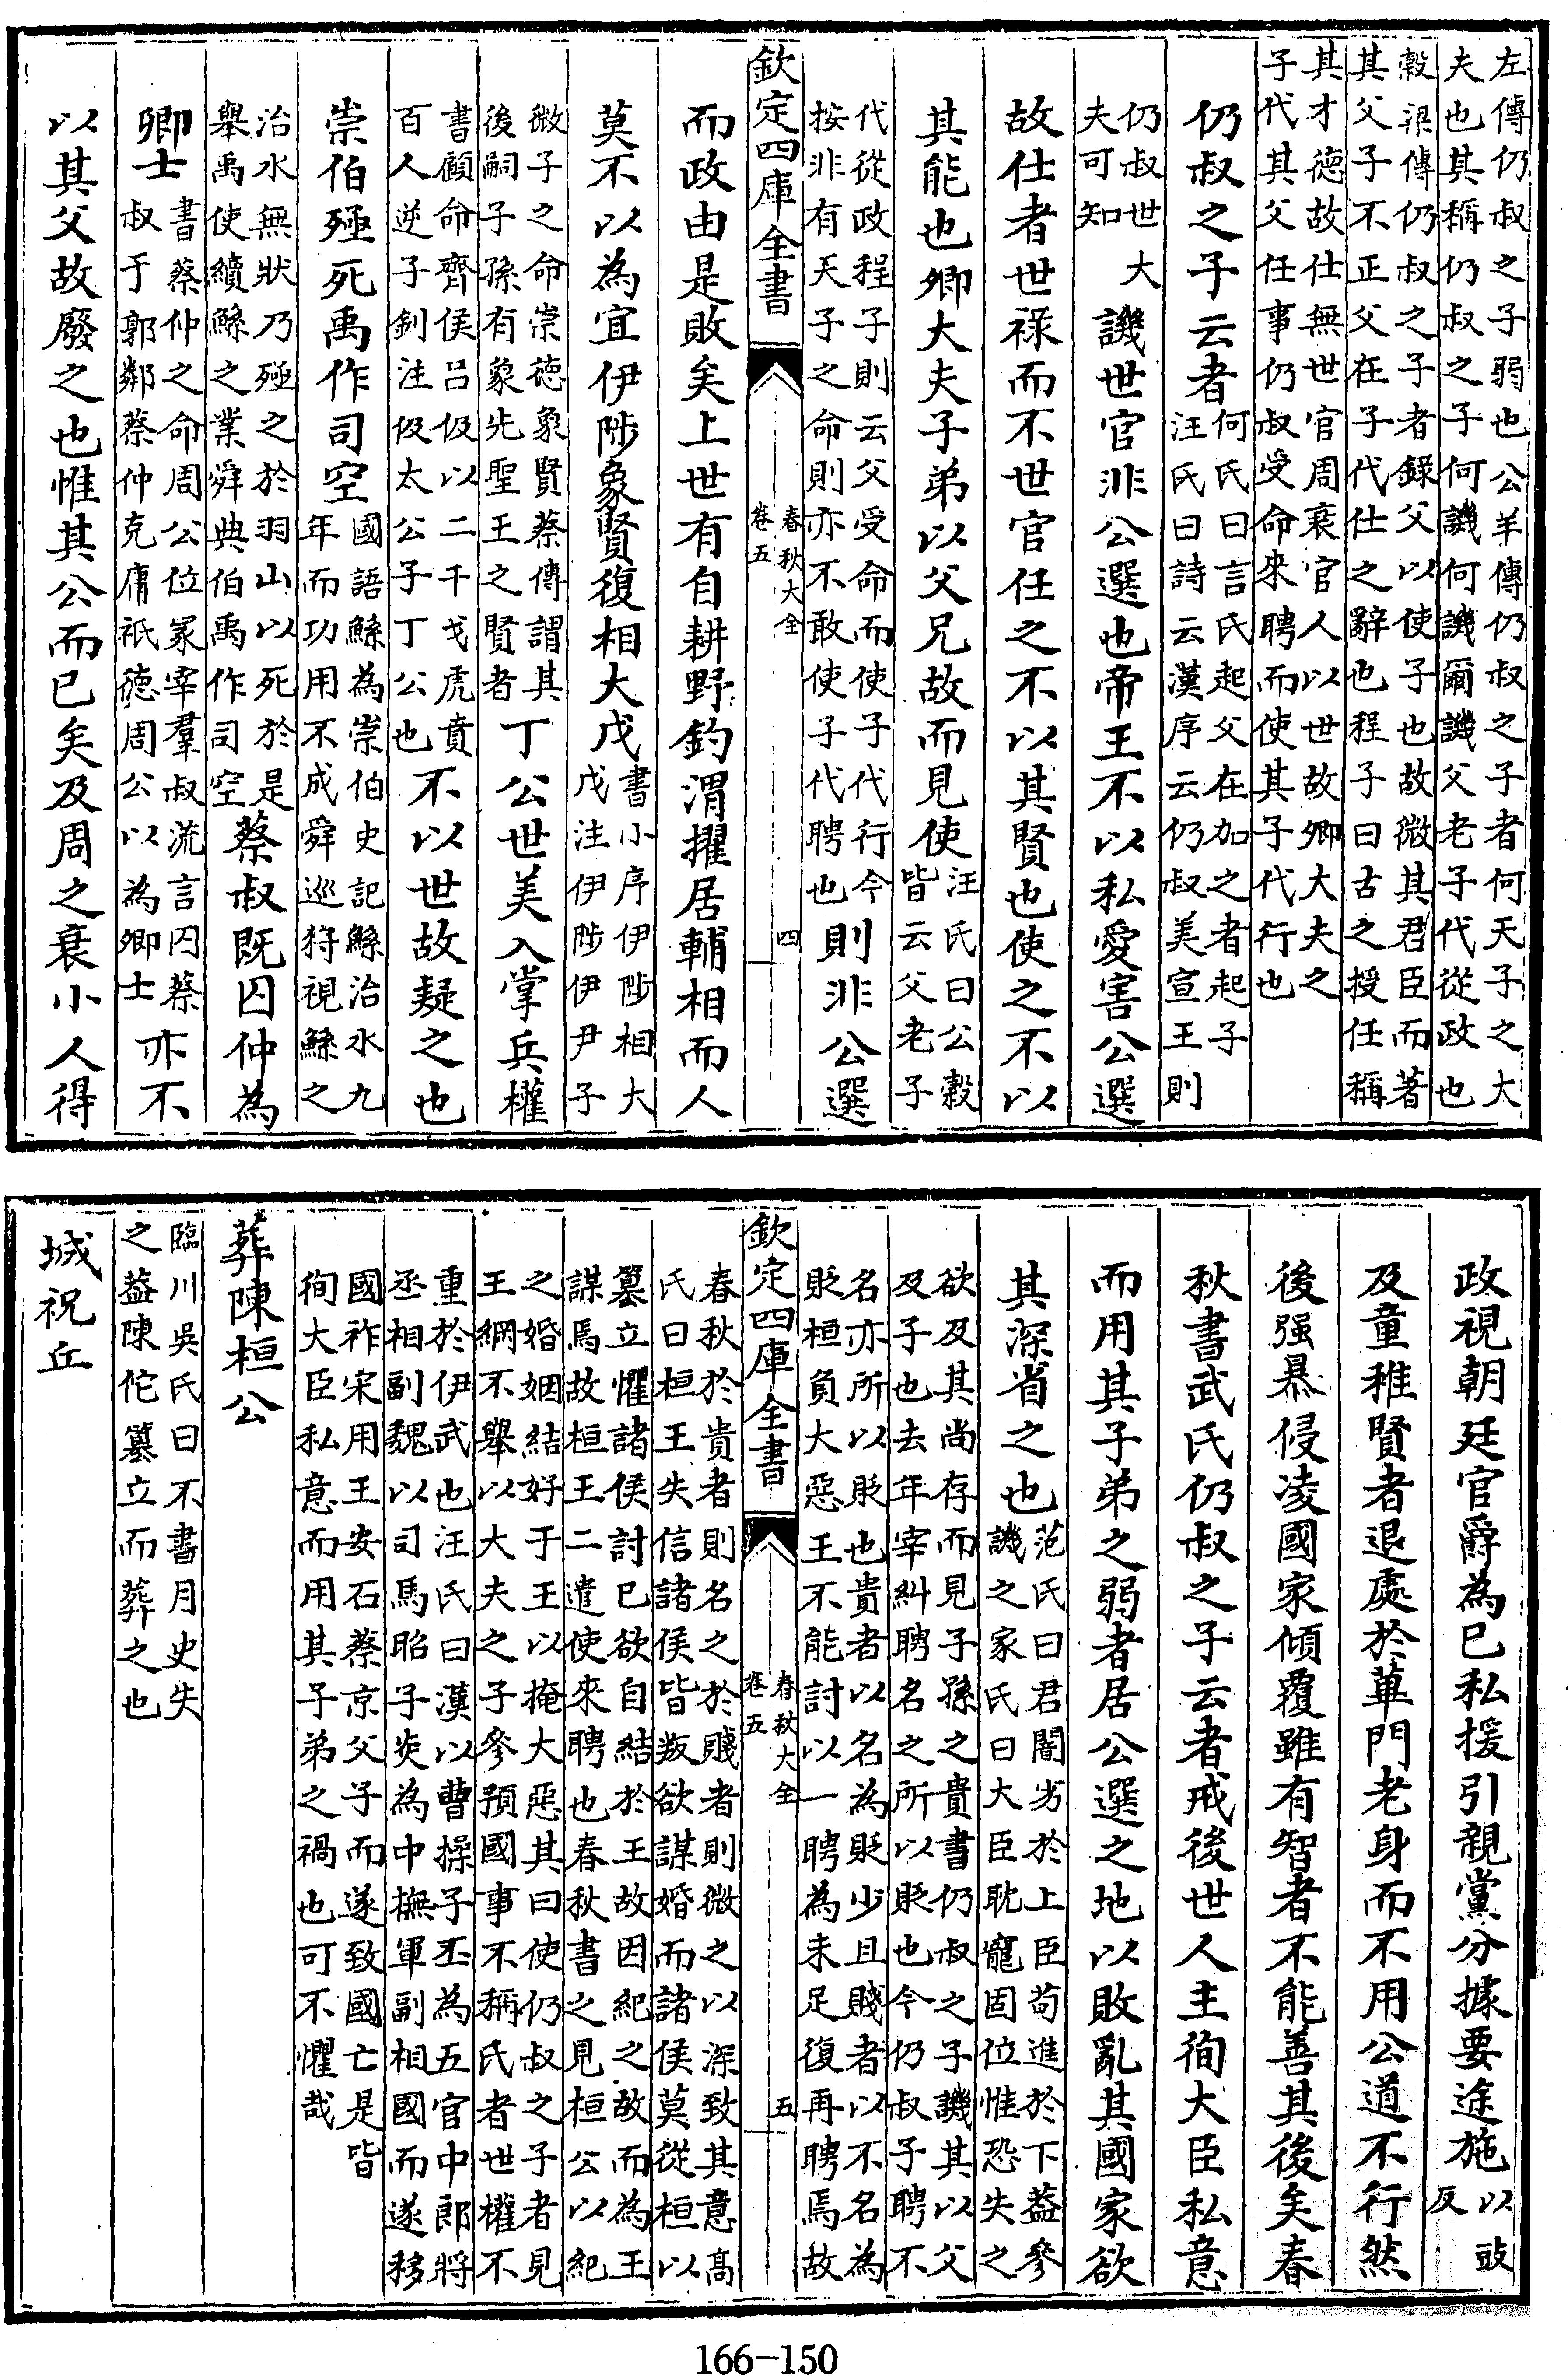 左傳仍叔之子弱也公羊傳仍叔之子者何天子之大
夫也其稱仍叔之子何譏何譏爾譏父老子代從政也
穀梁傳仍叔之子者錄父以使子也故微其君臣而著
其父子不正父在子代仕之辭也程子曰古之授任稱
其才德故仕無世官周衰官人以世故卿大夫之
子代其父任事仍叔受命來聘而使其子代行也
仍叔之子云者何氏曰言氏起父在加之者起子
汪氏曰詩云漢序云仍叔美宣王則
仍叔世大
夫可知
譏世官非公選也帝王不以私愛害公選
故仕者世祿而不世官任之不以其賢也使之不以
其能也卿大夫子弟以父兄故而見使汪氏曰公穀
皆云父老子
代從政程子則云父受命而使子代行今
按非有天子之命則亦不敢使子代聘也則非公選
欽定四庫全書
春秋大全
卷五
四
而政由是敗矣上世有自耕野釣渭擢居輔相而人
莫不以為宜伊陟象賢復相大戊書小序伊陟相大
戊注伊陟伊尹子
微子之命崇德象賢蔡傳謂其
後嗣子孫有象先聖王之賢者丁公世美入掌兵權
書顧命齊侯呂伋以二干戈虎賁
百人逆子釗注伋太公子丁公也不以世故疑之也
崇伯殛死禹作司空國語鯀為崇伯史記鯀治水九
年而功用不成舜巡狩視鯀之
治水無狀乃殛之於羽山以死於是
舉禹使續鯀之業舜典伯禹作司空蔡叔既囚仲為
卿士書蔡仲之命周公位冢宰羣叔流言囚蔡
叔于郭鄰蔡仲克庸祇德周公以為卿士亦不
以其父故廢之也惟其公而已矣及周之衰小人得
政視朝廷官爵為己私援引親黨分據要途施以豉
反
及童稚賢者退處於蓽門老身而不用公道不行然
後强暴侵凌國家傾覆雖有智者不能善其後矣春
秋書武氏仍叔之子云者戒後世人主徇大臣私意
而用其子弟之弱者居公選之地以敗亂其國家欲
其深省之也范氏曰君闇劣於上臣苟進於下葢參
譏之家氏曰大臣耽寵固位惟恐失之
欲及其尚存而見子孫之貴書仍叔之子譏其以父
及子也去年宰糾聘名之所以貶也今仍叔子聘不
名亦所以貶也貴者以名為貶少且賤者以不名為
貶桓負大惡王不能討以一聘為未足復再聘焉故
欽定四庫全書
春秋大全
卷五
五
春秋於貴者則名之於賤者則微之以深致其意髙
氏曰桓王失信諸侯皆叛欲謀婚而諸侯莫從桓以
簒立懼諸侯討已欲自結於王故因紀之故而為王
謀焉故桓王二遣使來聘也春秋書之見桓公以紀
之婚姻結好于王以掩大惡其曰使仍叔之子者見
王綱不舉以大夫之子參預國事不稱氏者世權不
重於伊武也汪氏曰漢以曹操子丕為五官中郎將
丞相副魏以司馬昭子炎為中撫軍副相國而遂移
國祚宋用王安石蔡京父子而遂致國亡是皆
徇大臣私意而用其子弟之禍也可不懼哉
葬陳桓公
臨川吳氏曰不書月史失
之葢陳佗簒立而葬之也
城祝丘
166-150